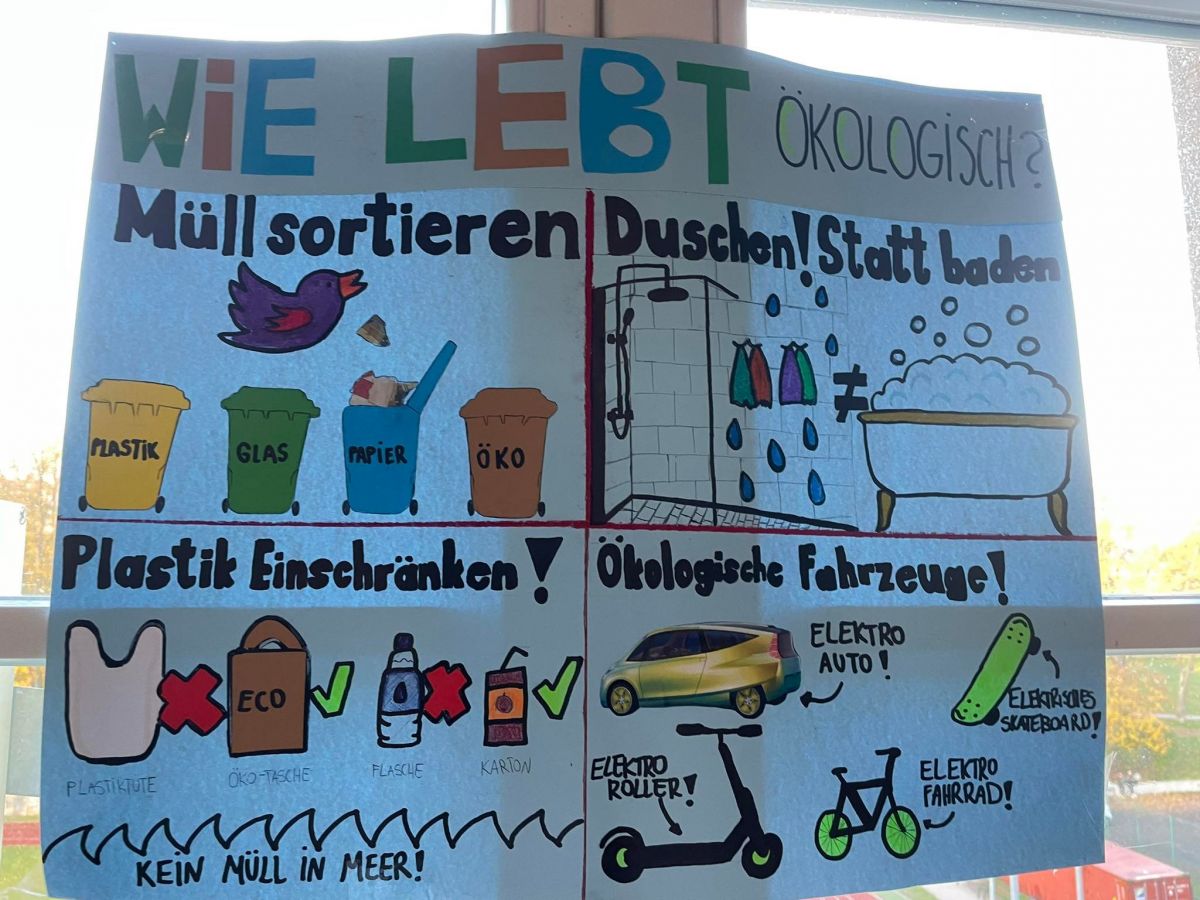 WiE LEBT ÖKOLOGiSCH?
Müll sortieren
PLASTiK
GLAS
PAPiER
ÖKO
Duschen! Statt baden
≠
Plastik Einschränken!
ECO
PLASTIKTÜTE
ÖKO-TASCHE
FLASCHE
KARTON
KEIN MÜLL IN MEER!
Ökologische Fahrzeuge!
ELEKTRO
AUTO!
ELEKTRISCHES
SKATEBOARD!
ELEKTRO
ROLLER!
ELEKTRO
FAHRRAD!